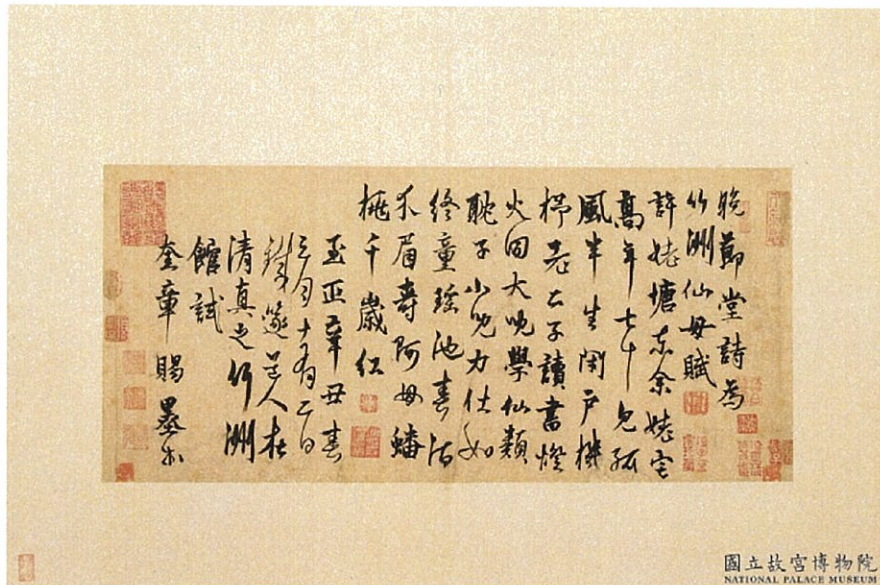 晚節堂詩為
竹洲仙母賦
許姥塘東余姥宅
高年七十見孤
風半生閉戶機
杼老二子讀書燈
火同大兒學仙類
耽子小兒力仕如
終童瑤池春酒
介眉壽阿母蟠
桃千歲紅
至正辛丑春
三月十有二日
鐵篴道人在
清真之竹洲
館試
奎章賜墨書
國立故宮博物院
NATIONAL PALACE MUSEUM